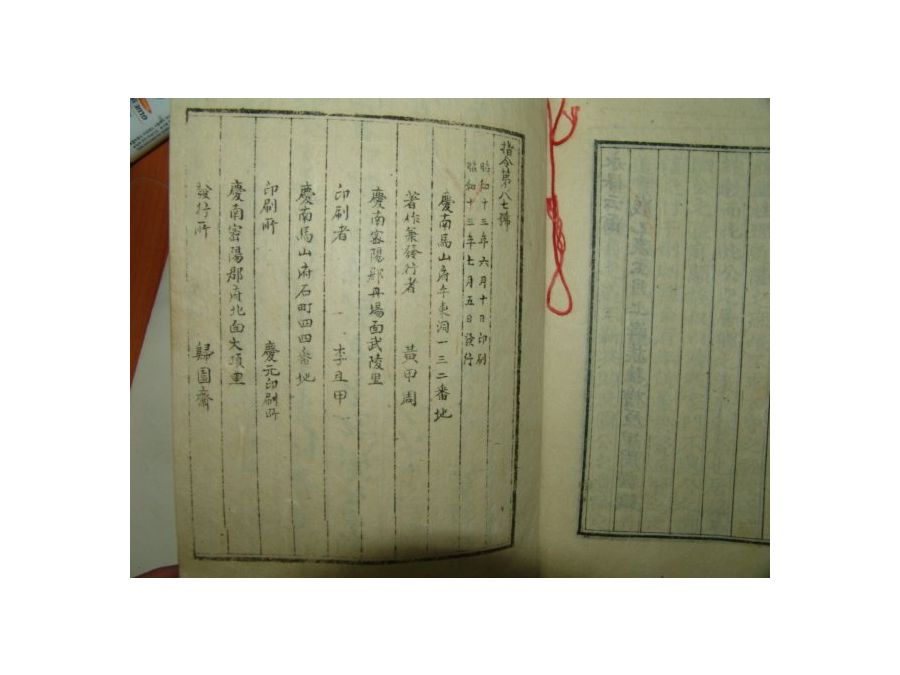 指令第八七號
昭和十三年六月十日印刷
昭和十三年七月五日發行
慶南馬山府午東洞一三二番地
著作兼發行者 黃甲周
慶南密陽郡丹場面武陵里
印刷者 李且甲
慶南馬山府石町四四番地
印刷所 慶元印刷所
慶南密陽郡府北面大項里
發行所 歸園齋